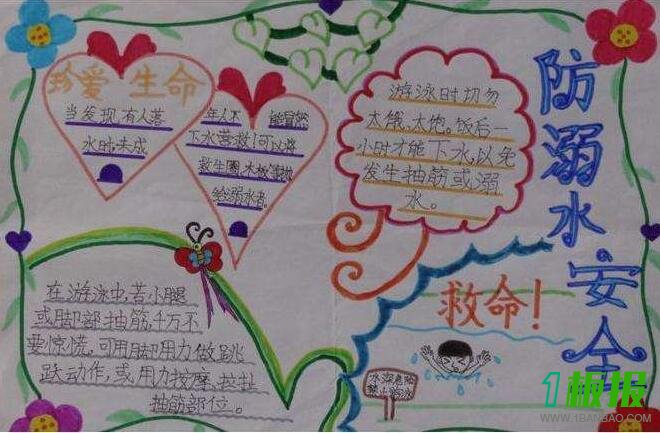 防溺水安全
珍爱生命
当发现有人落
水时,未成
年人不能冒然
下水营救!可以将
救生圈、木板等抛
给溺水者。
游泳时切勿
太饿、太饱。饭后一
小时才能下水,以免
发生抽筋或溺
水。
在游泳中,若小腿
或脚部抽筋,千万不
要惊慌,可用脚用力做跳
跃动作,或用力按摩、拉扯
抽筋部位。
救命!
1板报
WWW.1BANBAO.COM